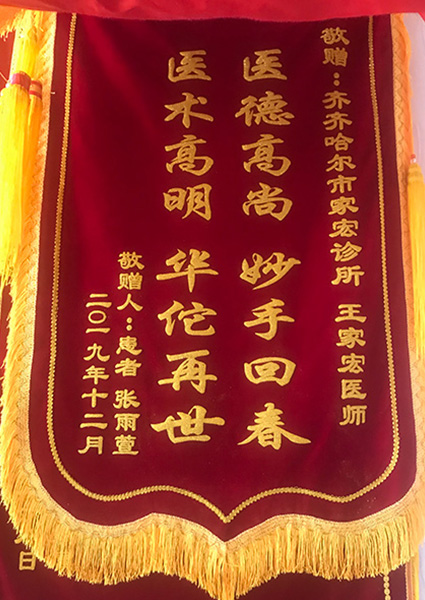 敬赠：齐齐哈尔市家宏诊所 王家宏医师
医德高尚 妙手回春
医术高明 华佗再世
敬赠人：患者 张雨萱
二〇一九年十二月
日